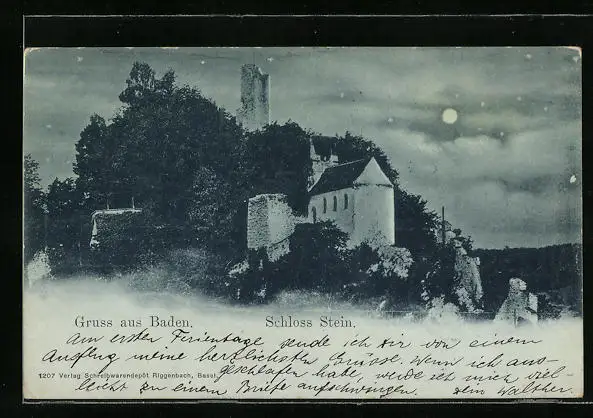 Gruss aus Baden. Schloss Stein.
Am ersten Ferientage sende ich dir von einem
Ausflug meine herzlichsten Grüsse. Wenn ich aus-
geschlafen habe, werde ich mich viel-
1207 Verlag Schreibwarendepôt Riggenbach, Basel.
leicht zu einem Briefe aufschwingen. Dein Walther.